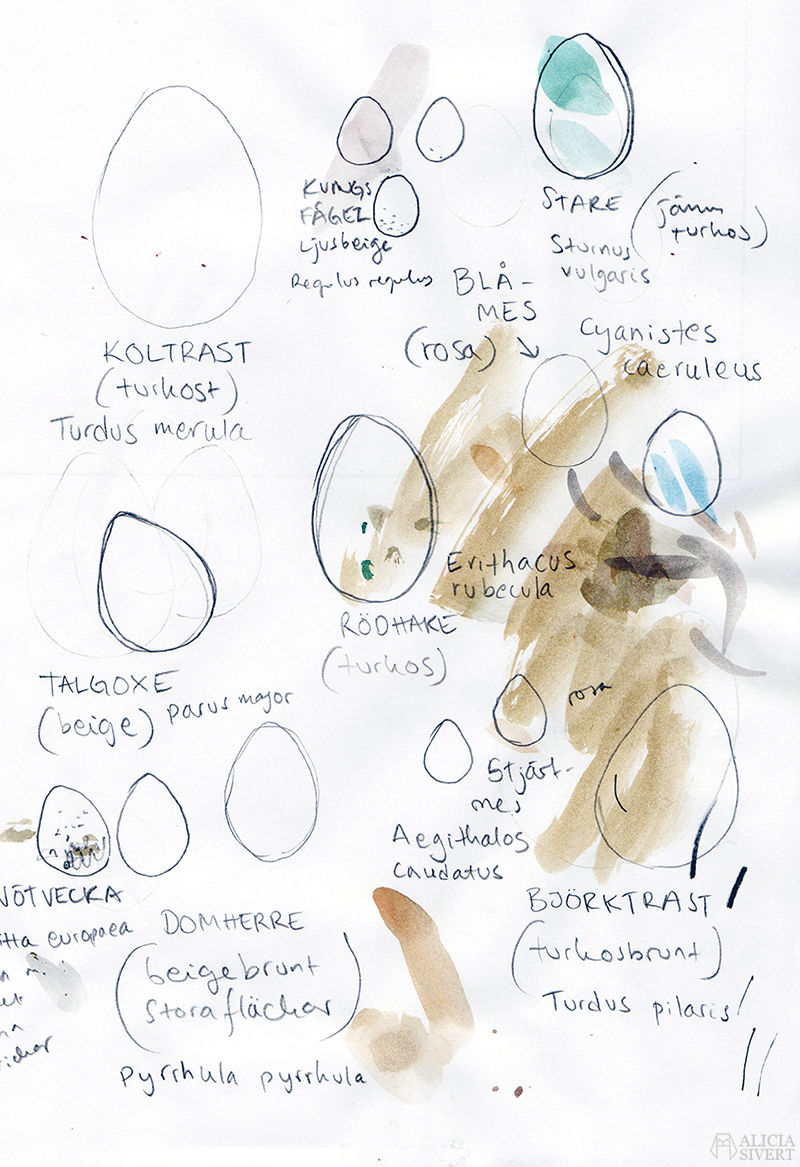 KUNGS
FÅGEL
Ljusbeige
Regulus regulus
STARE
(jämn
turkos)
Sturnus
vulgaris
BLÅ-
MES
(rosa)
Cyanistes
caeruleus
KOLTRAST
(turkost)
Turdus merula
Erithacus
rubecula
RÖDHAKE
(turkos)
TALGOXE
(beige) parus major
rosa
Stjärt-
mes
Aegithalos
caudatus
NÖTVECKA
itta europaea
DOMHERRE
(beigebrunt
Stora fläckar)
pyrrhula pyrrhula
BJÖRKTRAST
(turkosbrunt)
Turdus pilaris
ALICIA
SIVERT